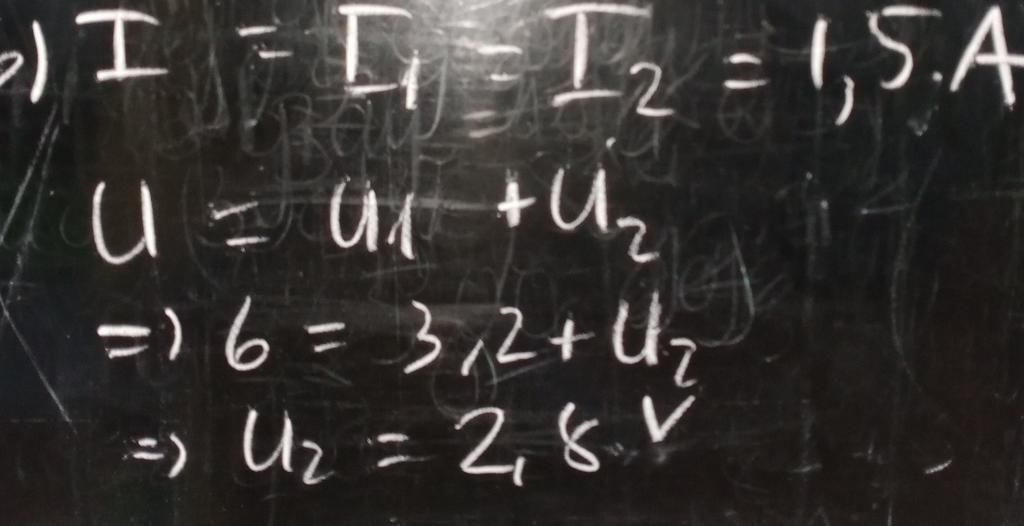 ) I = I₁ = I₂ = 1,5 A
U = U1 + U₂
=> 6 = 3,2 + U₂
=> U₂ = 2,8 V